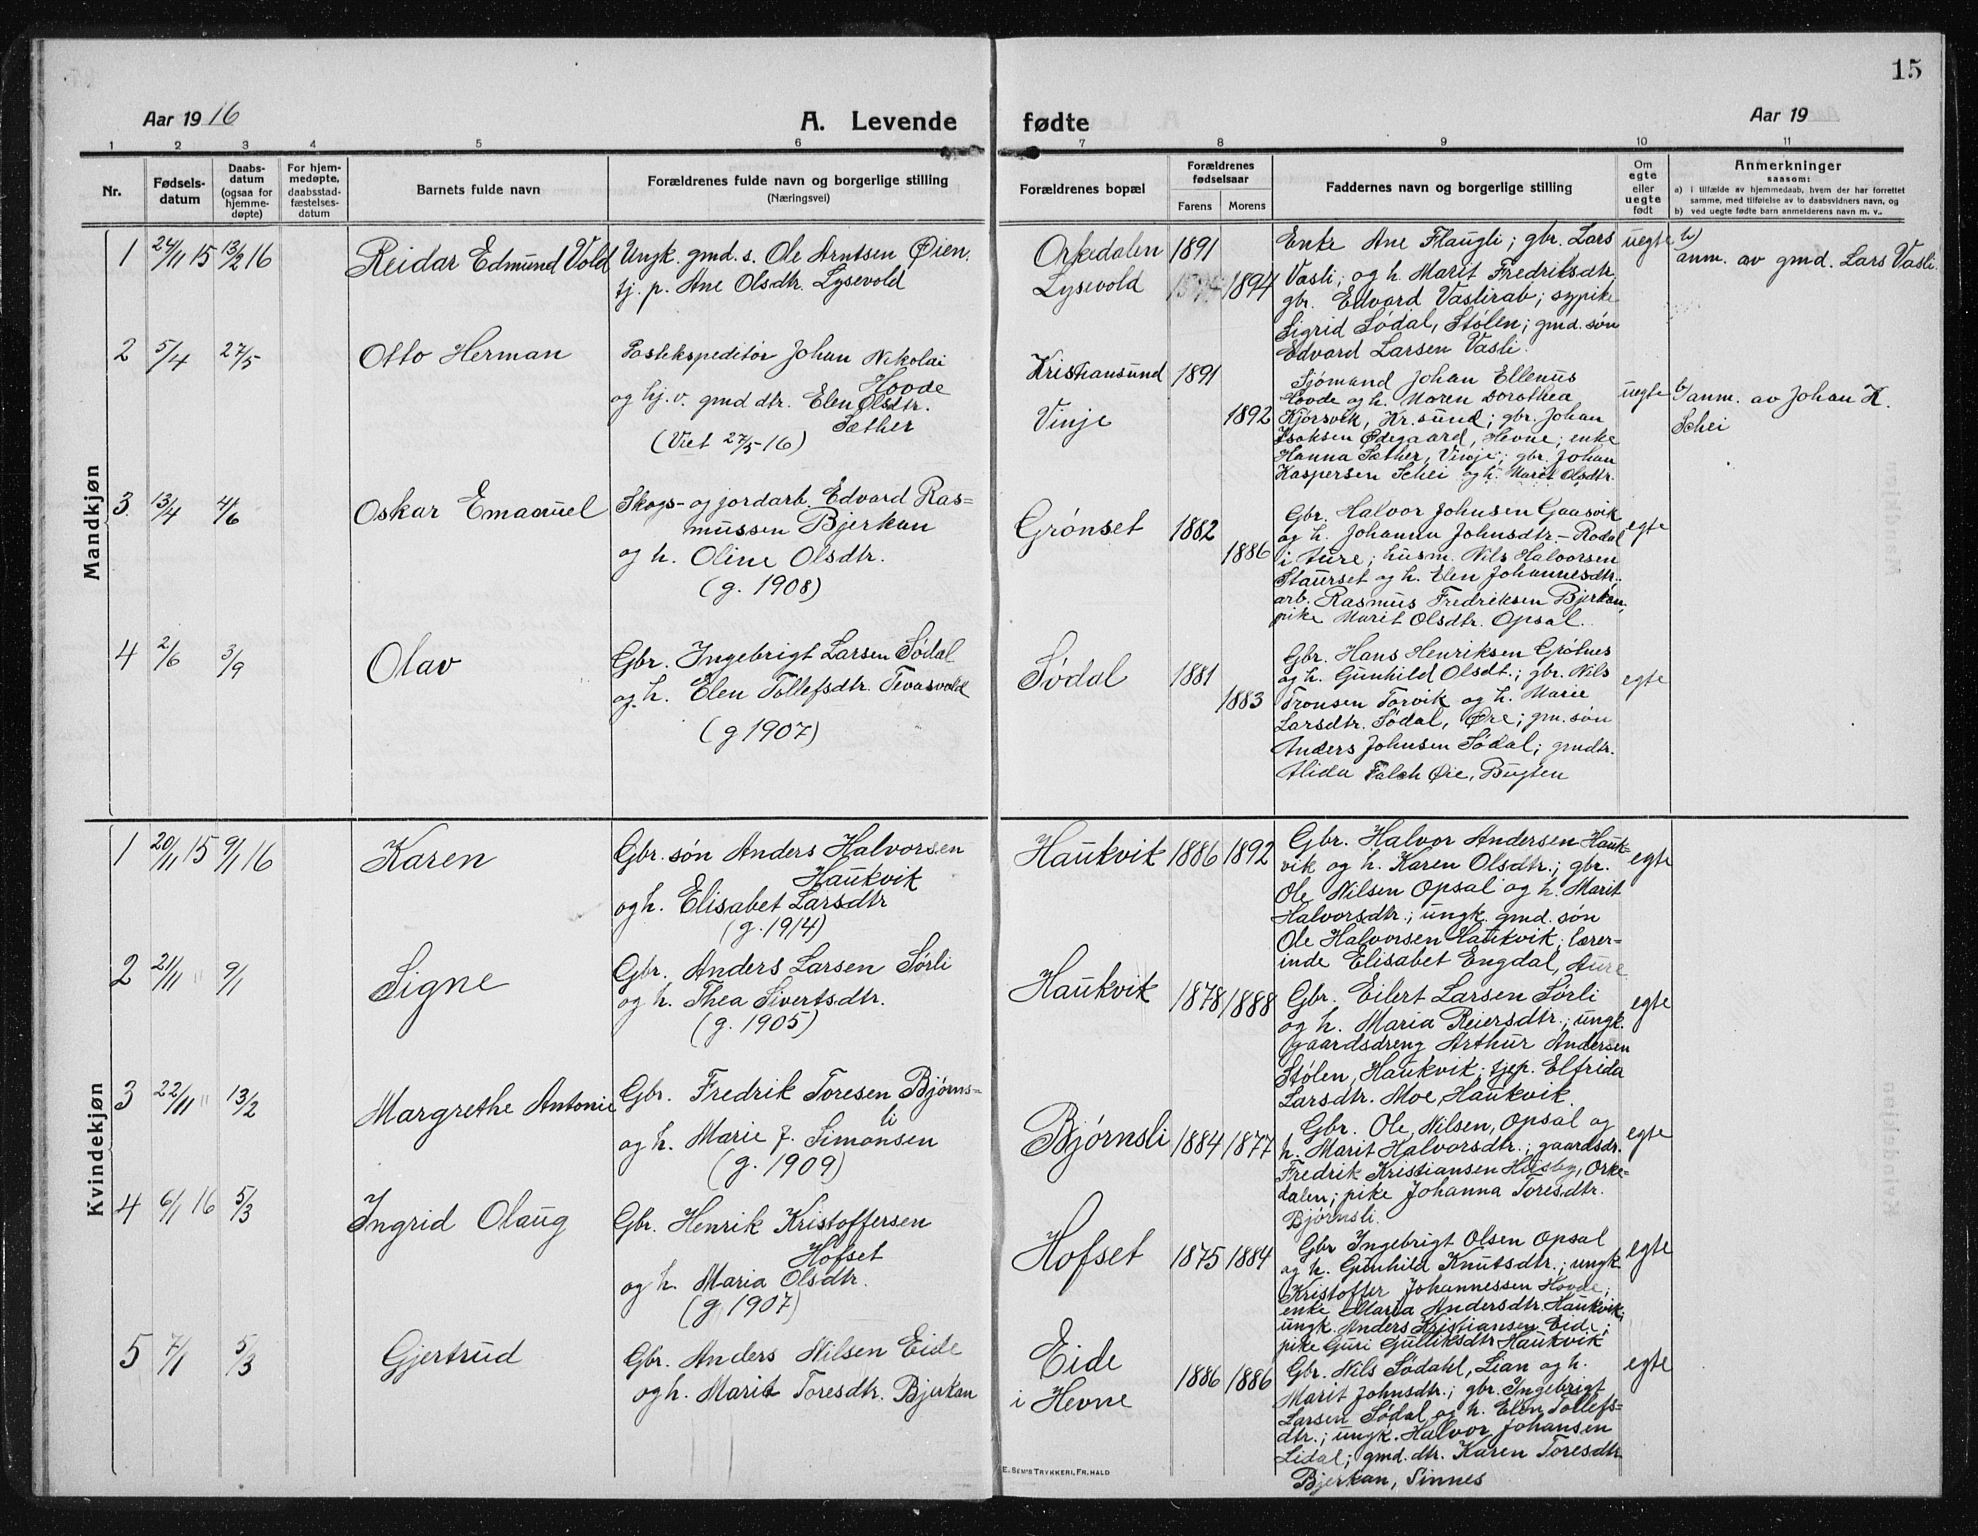 15
Aar 1916
A. Levende
fødte
Aar 19
1 2 3 4 5 6 7 8 9 10 11
Nr.
Fødsels-
datum
Daabs-
datum
(ogsaa for
hjemme-
døpte)
For hjem-
medøpte,
daabsstad-
fæstelses-
datum
Barnets fulde navn
Forældrenes fulde navn og borgerlige stilling
(Næringsvei)
Forældrenes bopæl
Forældrenes
fødselsaar
Farens Morens
Faddernes navn og borgerlige stilling
Om
egte
eller
uegte
født
Anmerkninger
saasom:
a) i tilfælde av hjemmedaab, hvem der har forrettet
samme, med tilføielse av to daabsvidners navn, og
b) ved uegte fødte barn anmelderens navn m. v..
Mandkjøn
1 24/11 15 13/2 16
Reidar Edmund Vold
Ungk. gmd. s. Ole Arntsen Øien.
tj. p. Ane Olsdtr. Lysevold
Orkedalen 1891
Lysevold 1894
Enke Ane Flaugli; gbr. Lars
Vasli; og h. Marit Fredriksdtr,
gbr. Edvard Vaslirab; sypike
Sigrid Sødal, Stølen; gmd. søn
Edvard Larsen Vasli.
uegte
b)
anm. av gmd. Lars Vasli.
2 5/4 27/5
Otto Herman
Postekspeditør Johan Nikolai
Hovde
og hj. v. gmd dtr. Elen Olsdtr.
Sæther
(Viet 27/5-16)
Kristiansund 1891
Vinje 1892
Sjømand Johan Ellenus
Hovde og h. Maren Dorothea
Kjørsvik, Kr.sund; gbr. Johan
Isaksen Ødegaard, Hevne; enke
Hanna Sæther, Vinje; gbr. Johan
Kaspersen Schei og h. Marit Olsdtr.
uegte
b/ anm. av Johan K.
Schei
3 13/4 4/6
Oskar Emanuel
Skogs- og jordarb. Edvard Ras=
mussen Bjerkan
og h. Oline Olsdtr.
(g. 1908)
Grønset 1882
1886
Gbr. Halvor Johnsen Gaasvik
og h. Johanna Johnsdtr.- Rodal
i Aure; husm. Nils Halvorsen
Staurset og h. Elen Johannesdtr.
arb. Rasmus Fredriksen Bjerkan,
pike Marit Olsdtr. Opsal.
egte
4 2/6 3/9
Olav
Gbr. Ingebrigt Larsen Sødal
og h. Elen Tollefsdtr. Tevasvold
(g 1907)
Sødal 1881
1883
Gbr. Hans Henriksen Grøtnes
og h. Gunhild Olsdt.; gbr. Nils
Tronsen Torvik og h. Marie
Larsdtr. Sødal, Øre; gm. søn
Anders Johnsen Sødal; gmdtr.
Alida Falch Øie, Bugten
egte
Kvindekjøn
1 20/11 15 9/1 16
Karen
Gbr. søn Anders Halvorsen
Haukvik
og h. Elisabet Larsdtr
(g. 1914)
Haukvik 1886 1892
Gbr. Halvor Andersen Hauk-
vik og h. Karen Olsdtr.; gbr.
Ole Nilsen Opsal og h. Marit
Halvorsdtr.; ungk. gmd. søn
Ole Halvorsen Haukvik; lærer-
inde Elisabet Engdal, Aure
egte
2 21/11 " 9/1
Signe
Gbr. Anders Larsen Sørli
og h. Thea Sivertsdtr.
(g. 1905)
Haukvik 1878 1888
Gbr. Eilert Larsen Sørli
og h. Maria Reiersdtr.; ungk.
gaardsdreng Arthur Andersen
Stølen, Haukvik; tjep. Elfrida
Larsdtr. Moe, Haukvik.
egte
3 22/11 " 13/2
Margrethe Antonie
Gbr. Fredrik Toresen Bjørns=
li
og h. Marie J. Simonsen
(g. 1909)
Bjørnsli 1884 1877
Gbr. Ole Nilsen, Opsal og
h. Marit Halvorsdtr.; gaardsdr.
Fredrik Kristiansen Husby, Orke-
dalen; pike Johanna Toresdtr.
Bjørnsli.
egte
4 6/1 16 5/3
Ingrid Olaug
Gbr. Henrik Kristoffersen
Hofset
og h. Maria Olsdtr.
(g. 1907)
Hofset 1875 1884
Gbr Ingebrigt Olsen Opsal
og h. Gunhild Knutsdtr.; ungk.
Kristoffer Johannessen Hovde;
enke Maria Andersdtr. Haukvik;
ungk. Anders Kristiansen Eide;
pike Guri Gulliksdtr Haukvik
egte
5 7/1 5/3
Gjertrud
Gbr. Anders Nilsen Eide
og h. Marit Toresdtr. Bjerkan
Eide
i Hevne
1886 1886
Gbr. Nils Sødahl, Lian og h.
Marit Johnsdtr.; gbr. Ingebrigt
Larsen Sødal og h. Elen Tollefs-
dtr.; ungk. Halvor Johansen
Lidal; gmd. dtr. Karen Toresdtr
Bjerkan, Sinnes
egte
E. SEM'S TRYKKERI, FR.HALD